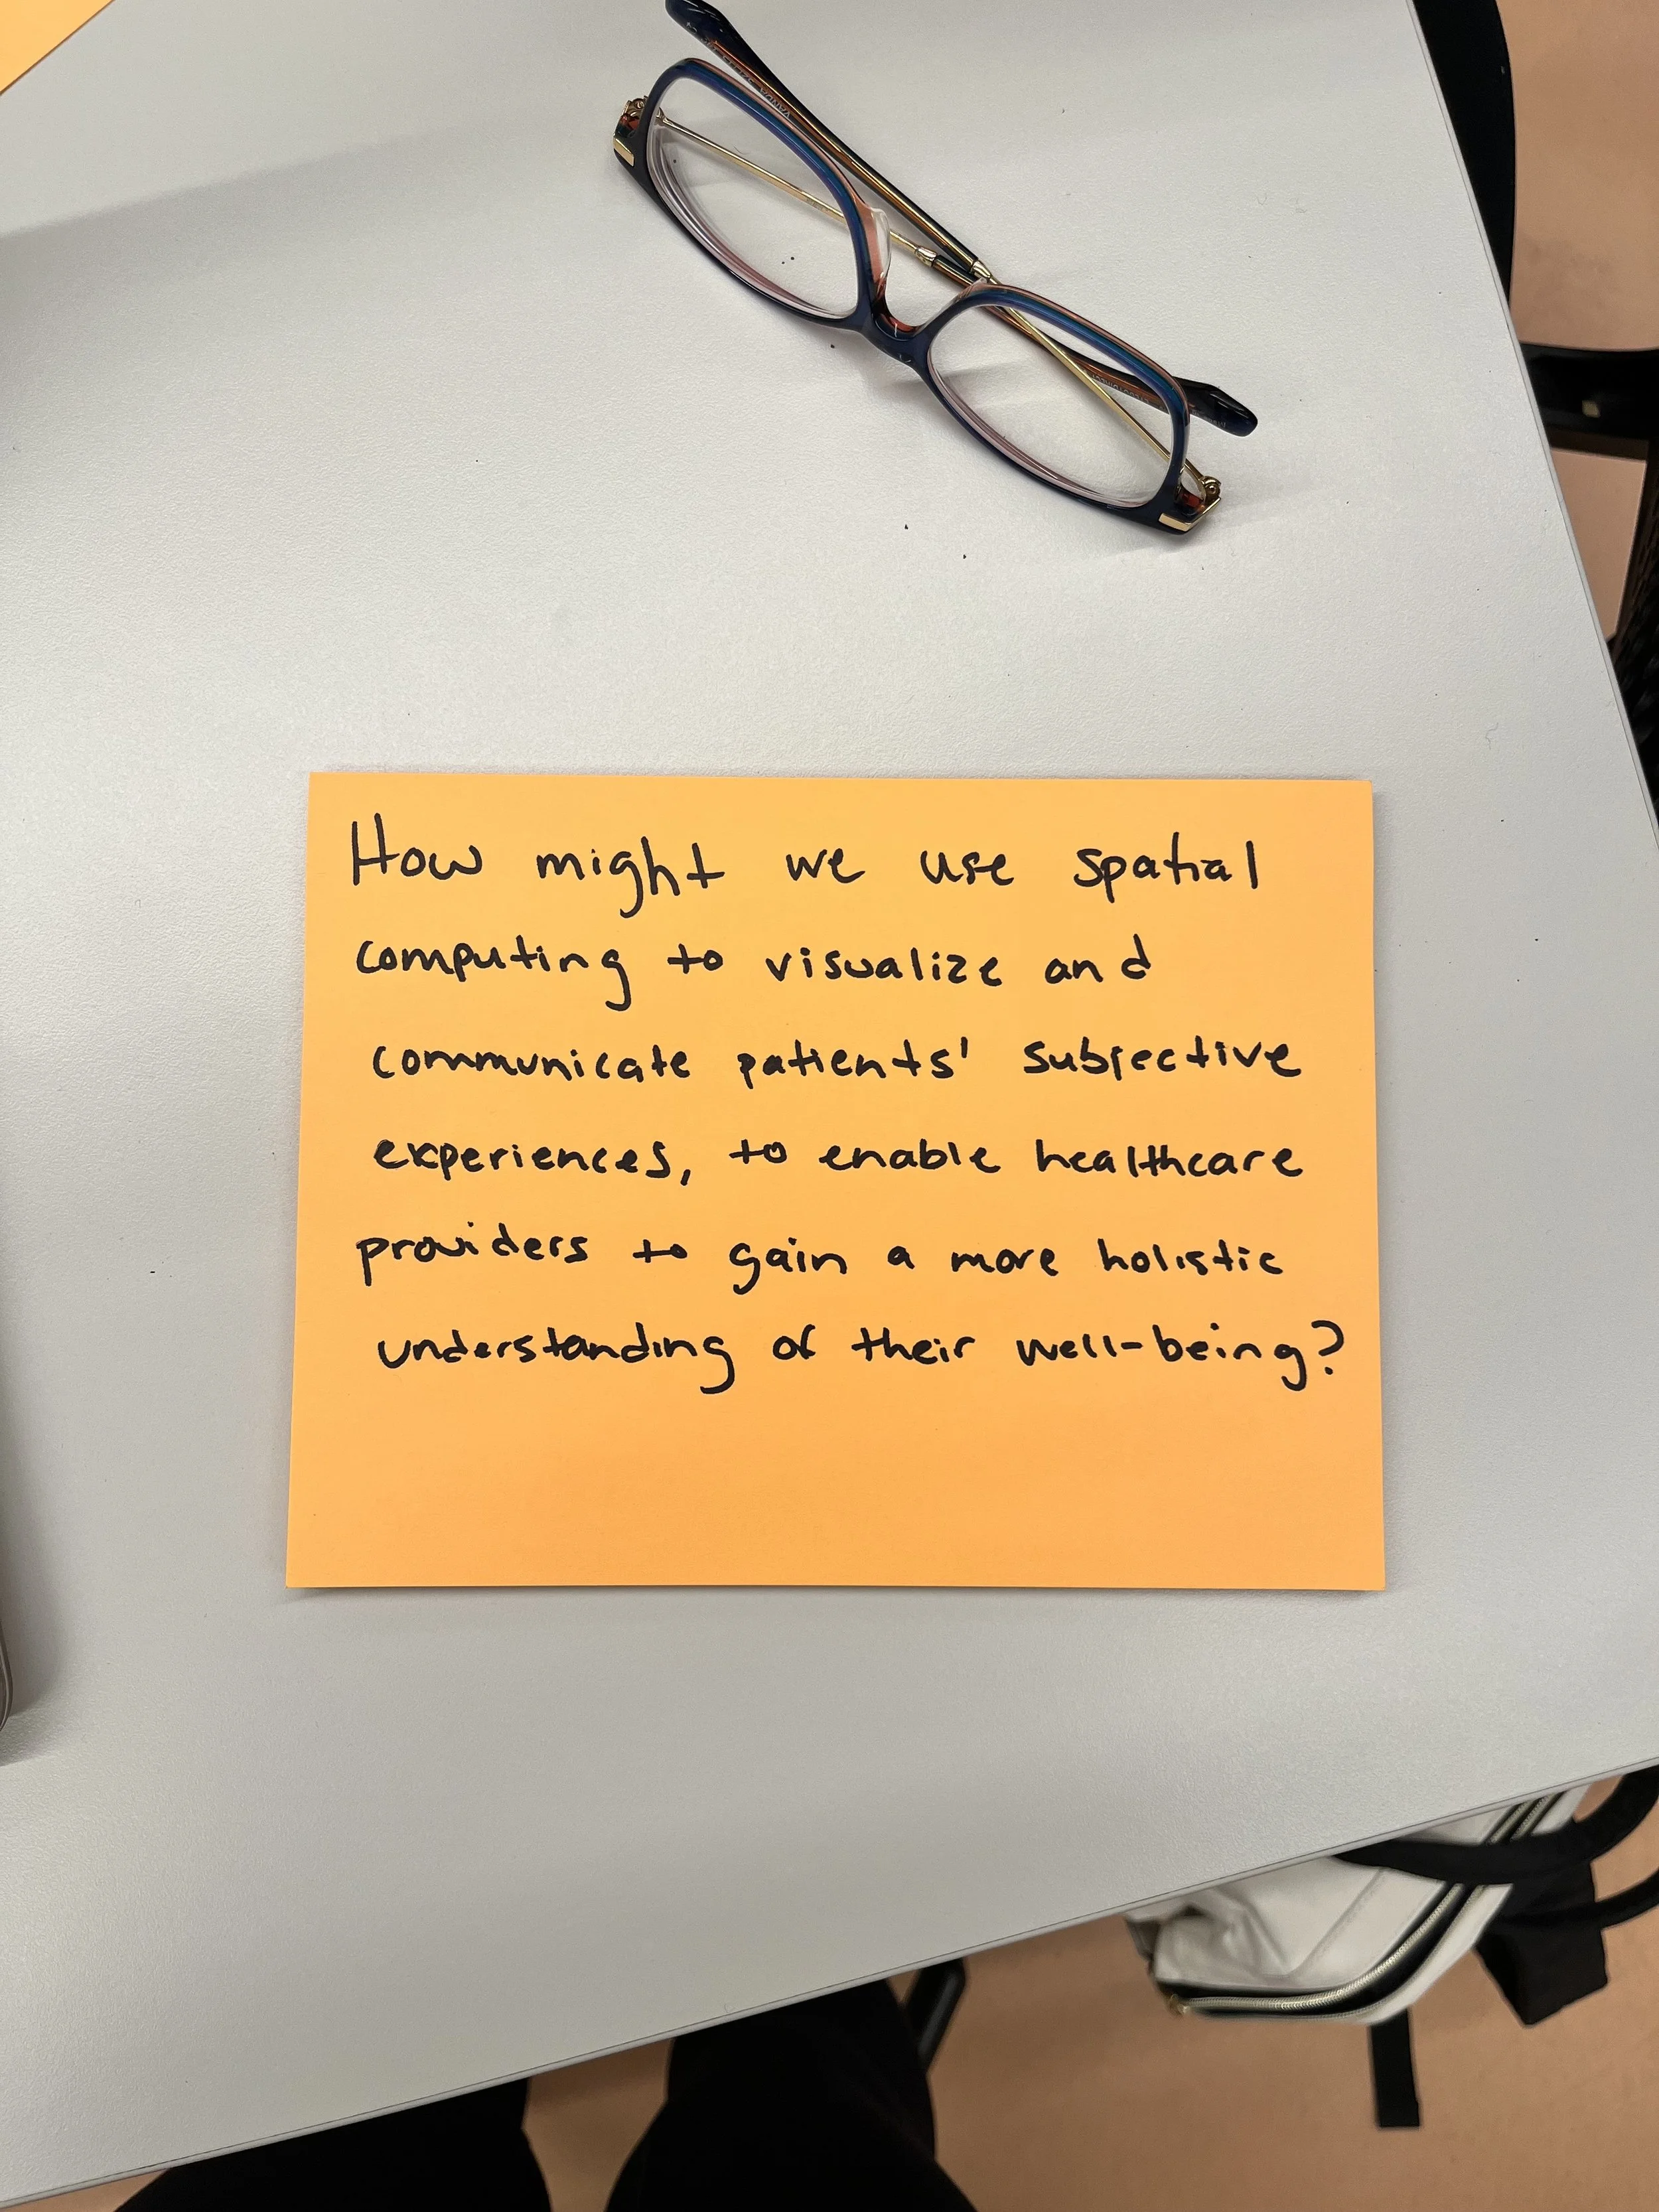 How might we use spatial
computing to visualize and
communicate patients' subjective
experiences, to enable healthcare
providers to gain a more holistic
understanding of their well-being?